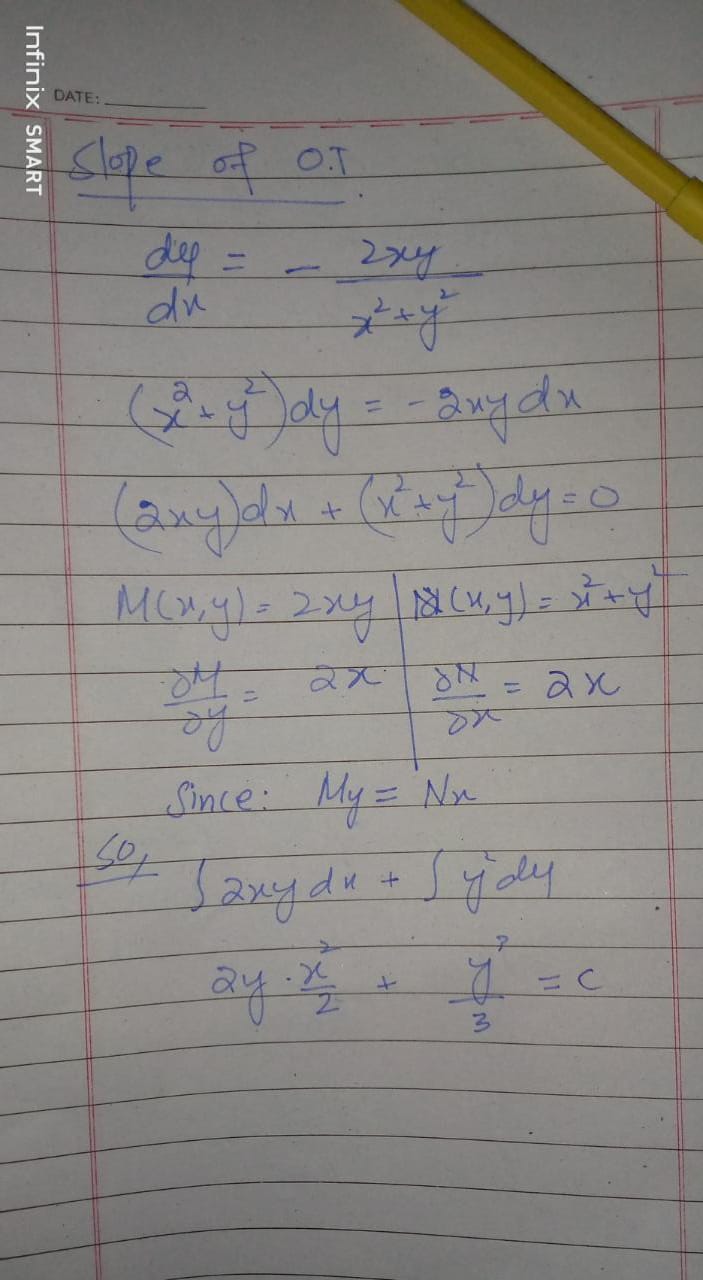 Infinix SMART
DATE:
Slope of O.T.
dy/dx = - 2xy/(x²+y²)
(x²+y²)dy = -2xy dx
(2xy)dx + (x²+y²)dy=0
M(x,y) = 2xy | N(x,y) = x²+y²
∂M/∂y = 2x | ∂N/∂x = 2x
Since: My = Nx
So,
∫2xy dx + ∫y²dy
2y · x²/2 + y³/3 = c